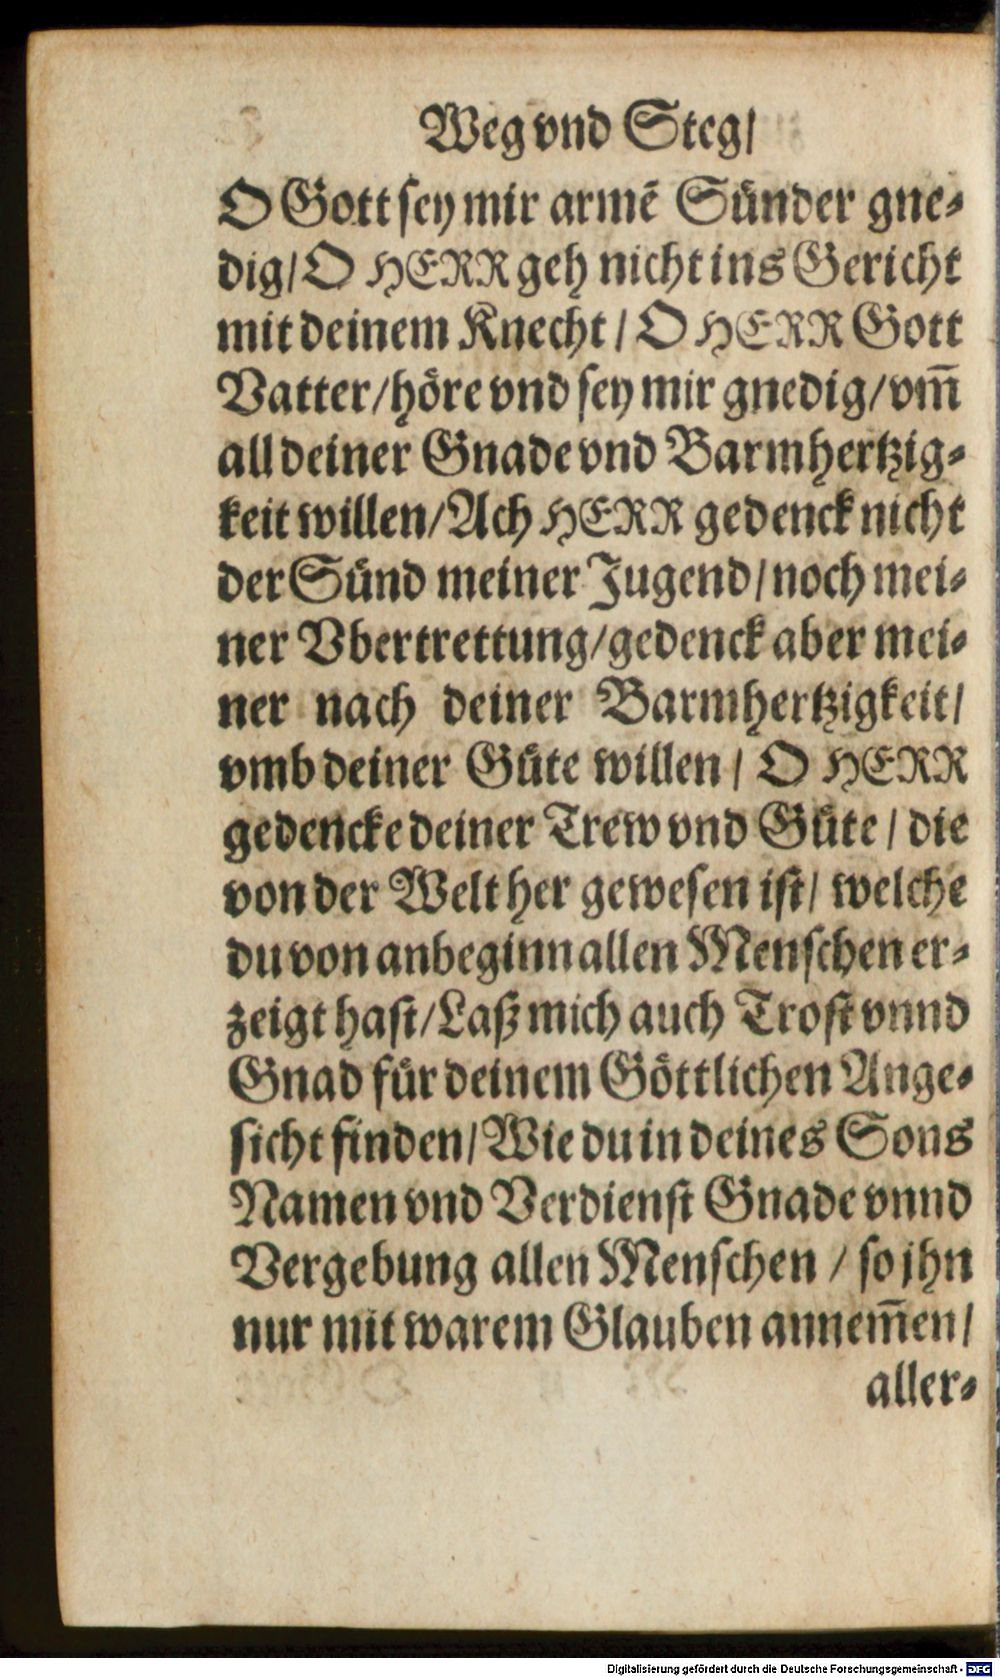 Weg vnd Steg/
O Gott sey mir armē Sünder gne-
dig/ O HERR geh nicht ins Gericht
mit deinem Knecht / O HERR Gott
Vatter/ höre vnd sey mir gnedig/ vm̄
all deiner Gnade vnd Barmhertzig-
keit willen/ Ach HERR gedenck nicht
der Sünd meiner Jugend/ noch mei-
ner Vbertrettung/ gedenck aber mei-
ner nach deiner Barmhertzigkeit/
vmb deiner Güte willen / O HERR
gedencke deiner Trew vnd Güte / die
von der Welt her gewesen ist/ welche
du von anbeginn allen Menschen er-
zeigt hast/ Laß mich auch Trost vnnd
Gnad für deinem Göttlichen Ange-
sicht finden/ Wie du in deines Sons
Namen vnd Verdienst Gnade vnnd
Vergebung allen Menschen / so jhn
nur mit warem Glauben annem̄en/
aller-
Digitalisierung gefördert durch die Deutsche Forschungsgemeinschaft - DFG